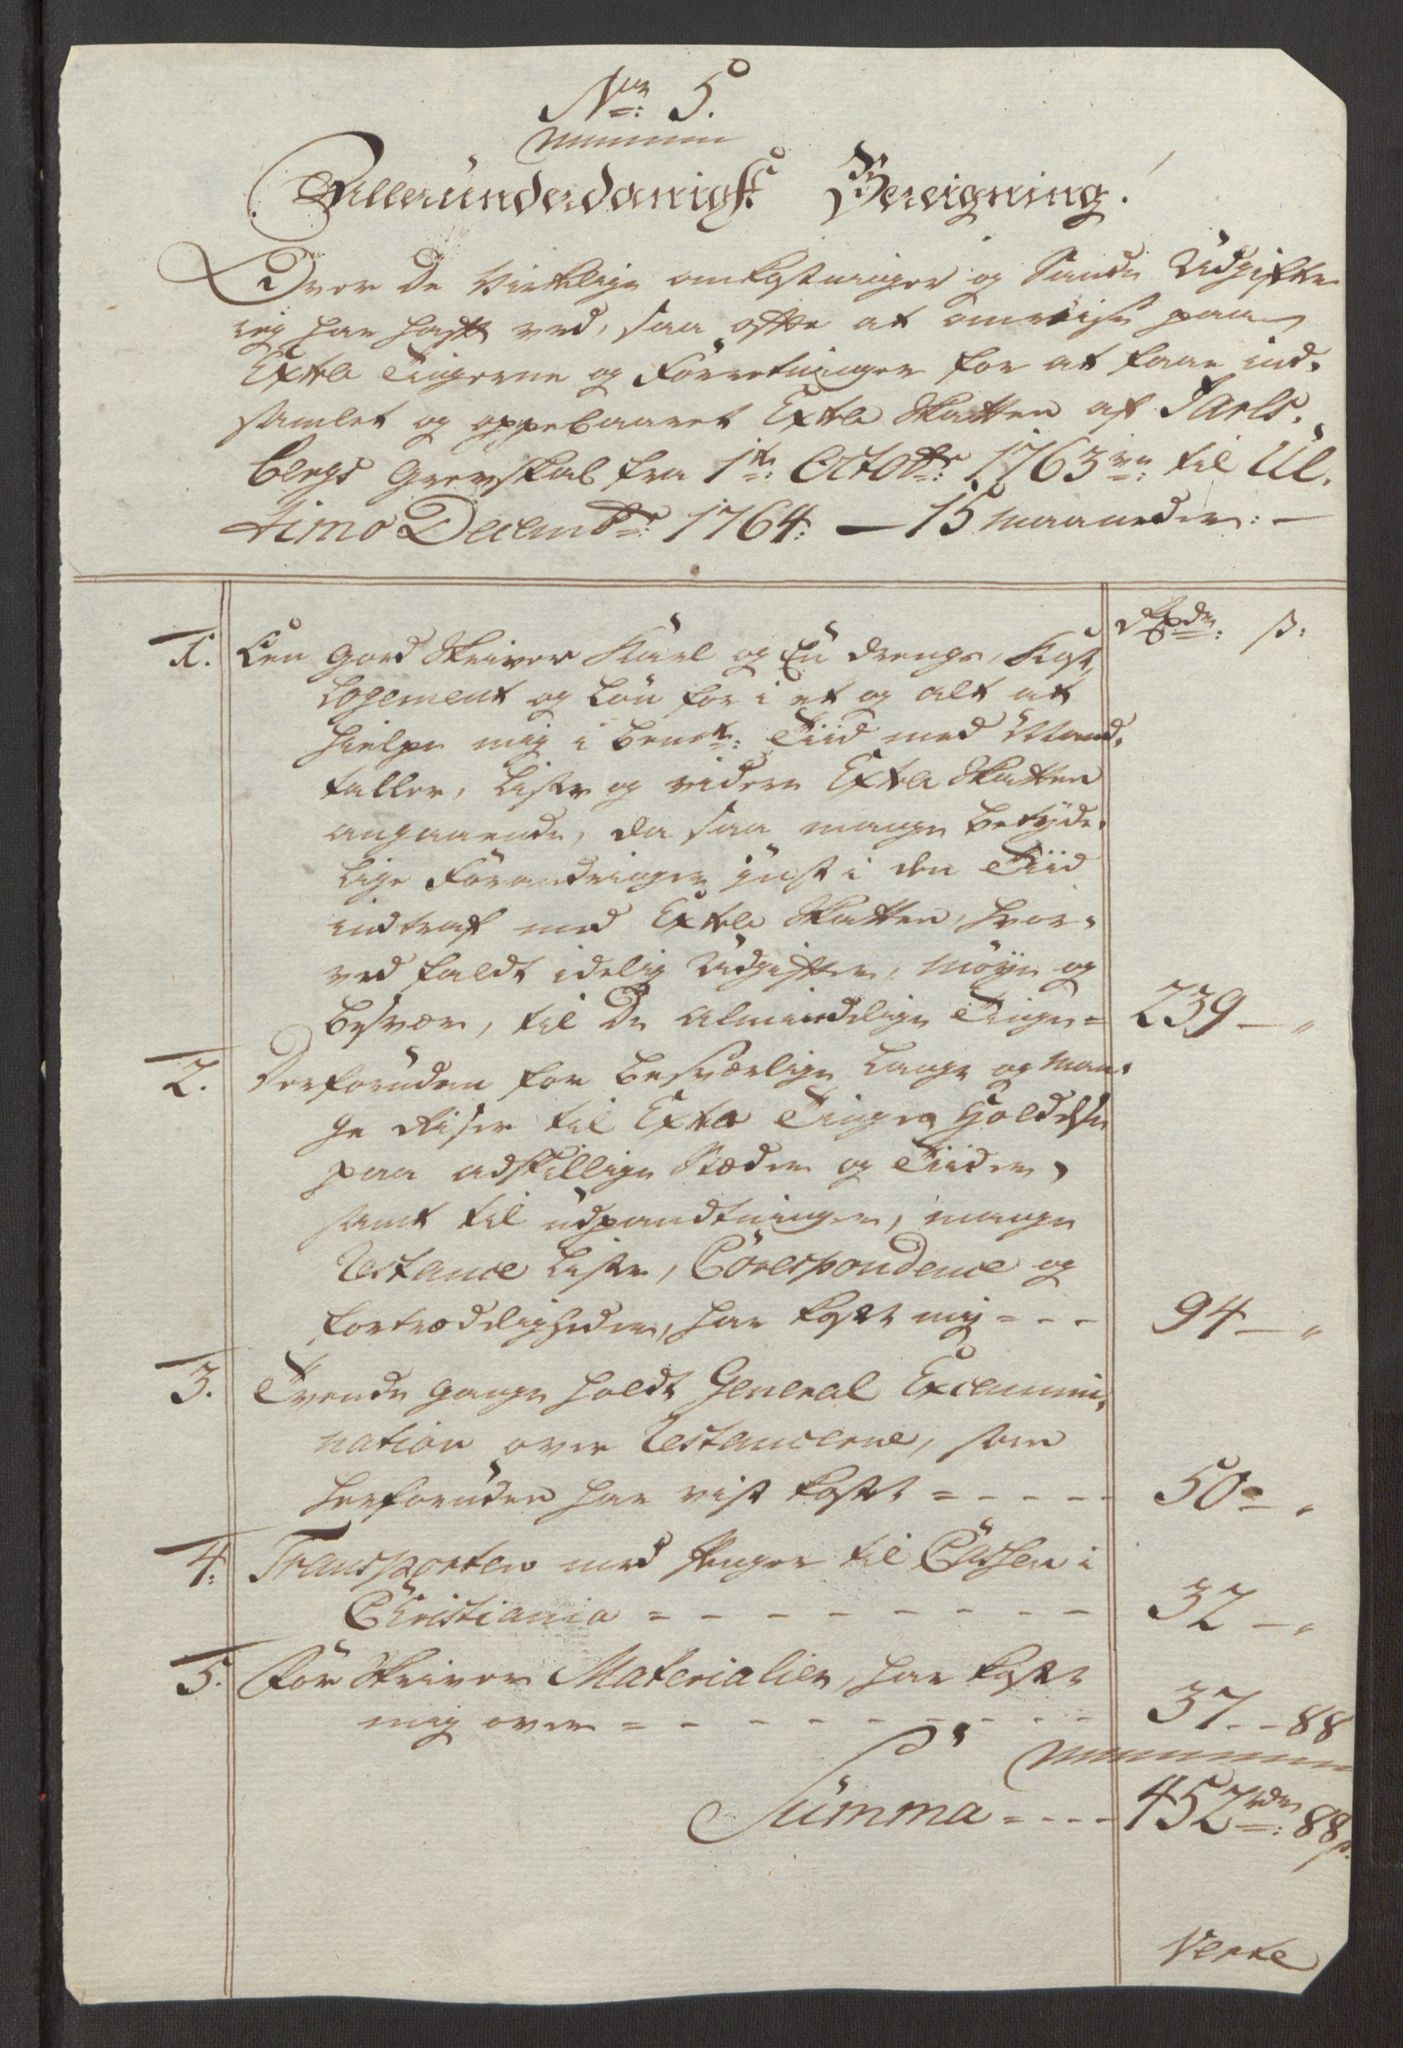 No. 5.
Allerunderdanigst Bereigning.
Over de Virklige omkostninger og Sande Udgifter
ieg har haft ved, saa ofte at omreise paa
Extra Tingerne og Forretninger for at faae ind-
samlet og oppebaaret Extra Skatten af Jarls-
bergs Grevskab fra 1te Octobr: 1763 til Ul-
timo Decembr: 1764: — 15 maaneder: —
Rdr: ß:
1. Een goed Skriver Karl og En drengs, Kost,
Logement og Løn for i et og alt at
hielpe mig i bemte: Tiid med Mand-
taller, Lister og videre Extra Skatten
angaaende, da saa mange betyde-
lige Forandringer just i den Tiid
indtraf med Extra Skatten, hvor-
ved faldt idelig Udgifter, Møye og
besvær, til de almindelige Tinge = 239 — "
2. Derforuden for besværlige lange og man-
ge Reiser til Extra Tinges Holdelse
paa adskillige Stæder og Tiider,
samt til udpandtninger, mange
Restance Lister, Corespondence og
fortrædeligheder, har kostet mig = - - 94 — "
3. Tvende gange holdt General Excammi-
nation over Restancerne, som
herforuden har vist kostet = - - - - 50 = "
4: Transporten med Penger til Cassen i
Christiania = - - - - - - - - 32 — "
5. For Skriver Materialier, har kostet
mig over = - - - - - - - - 37 - - 88
Summa = - - - 452 rdr: 88 ß.
Verte